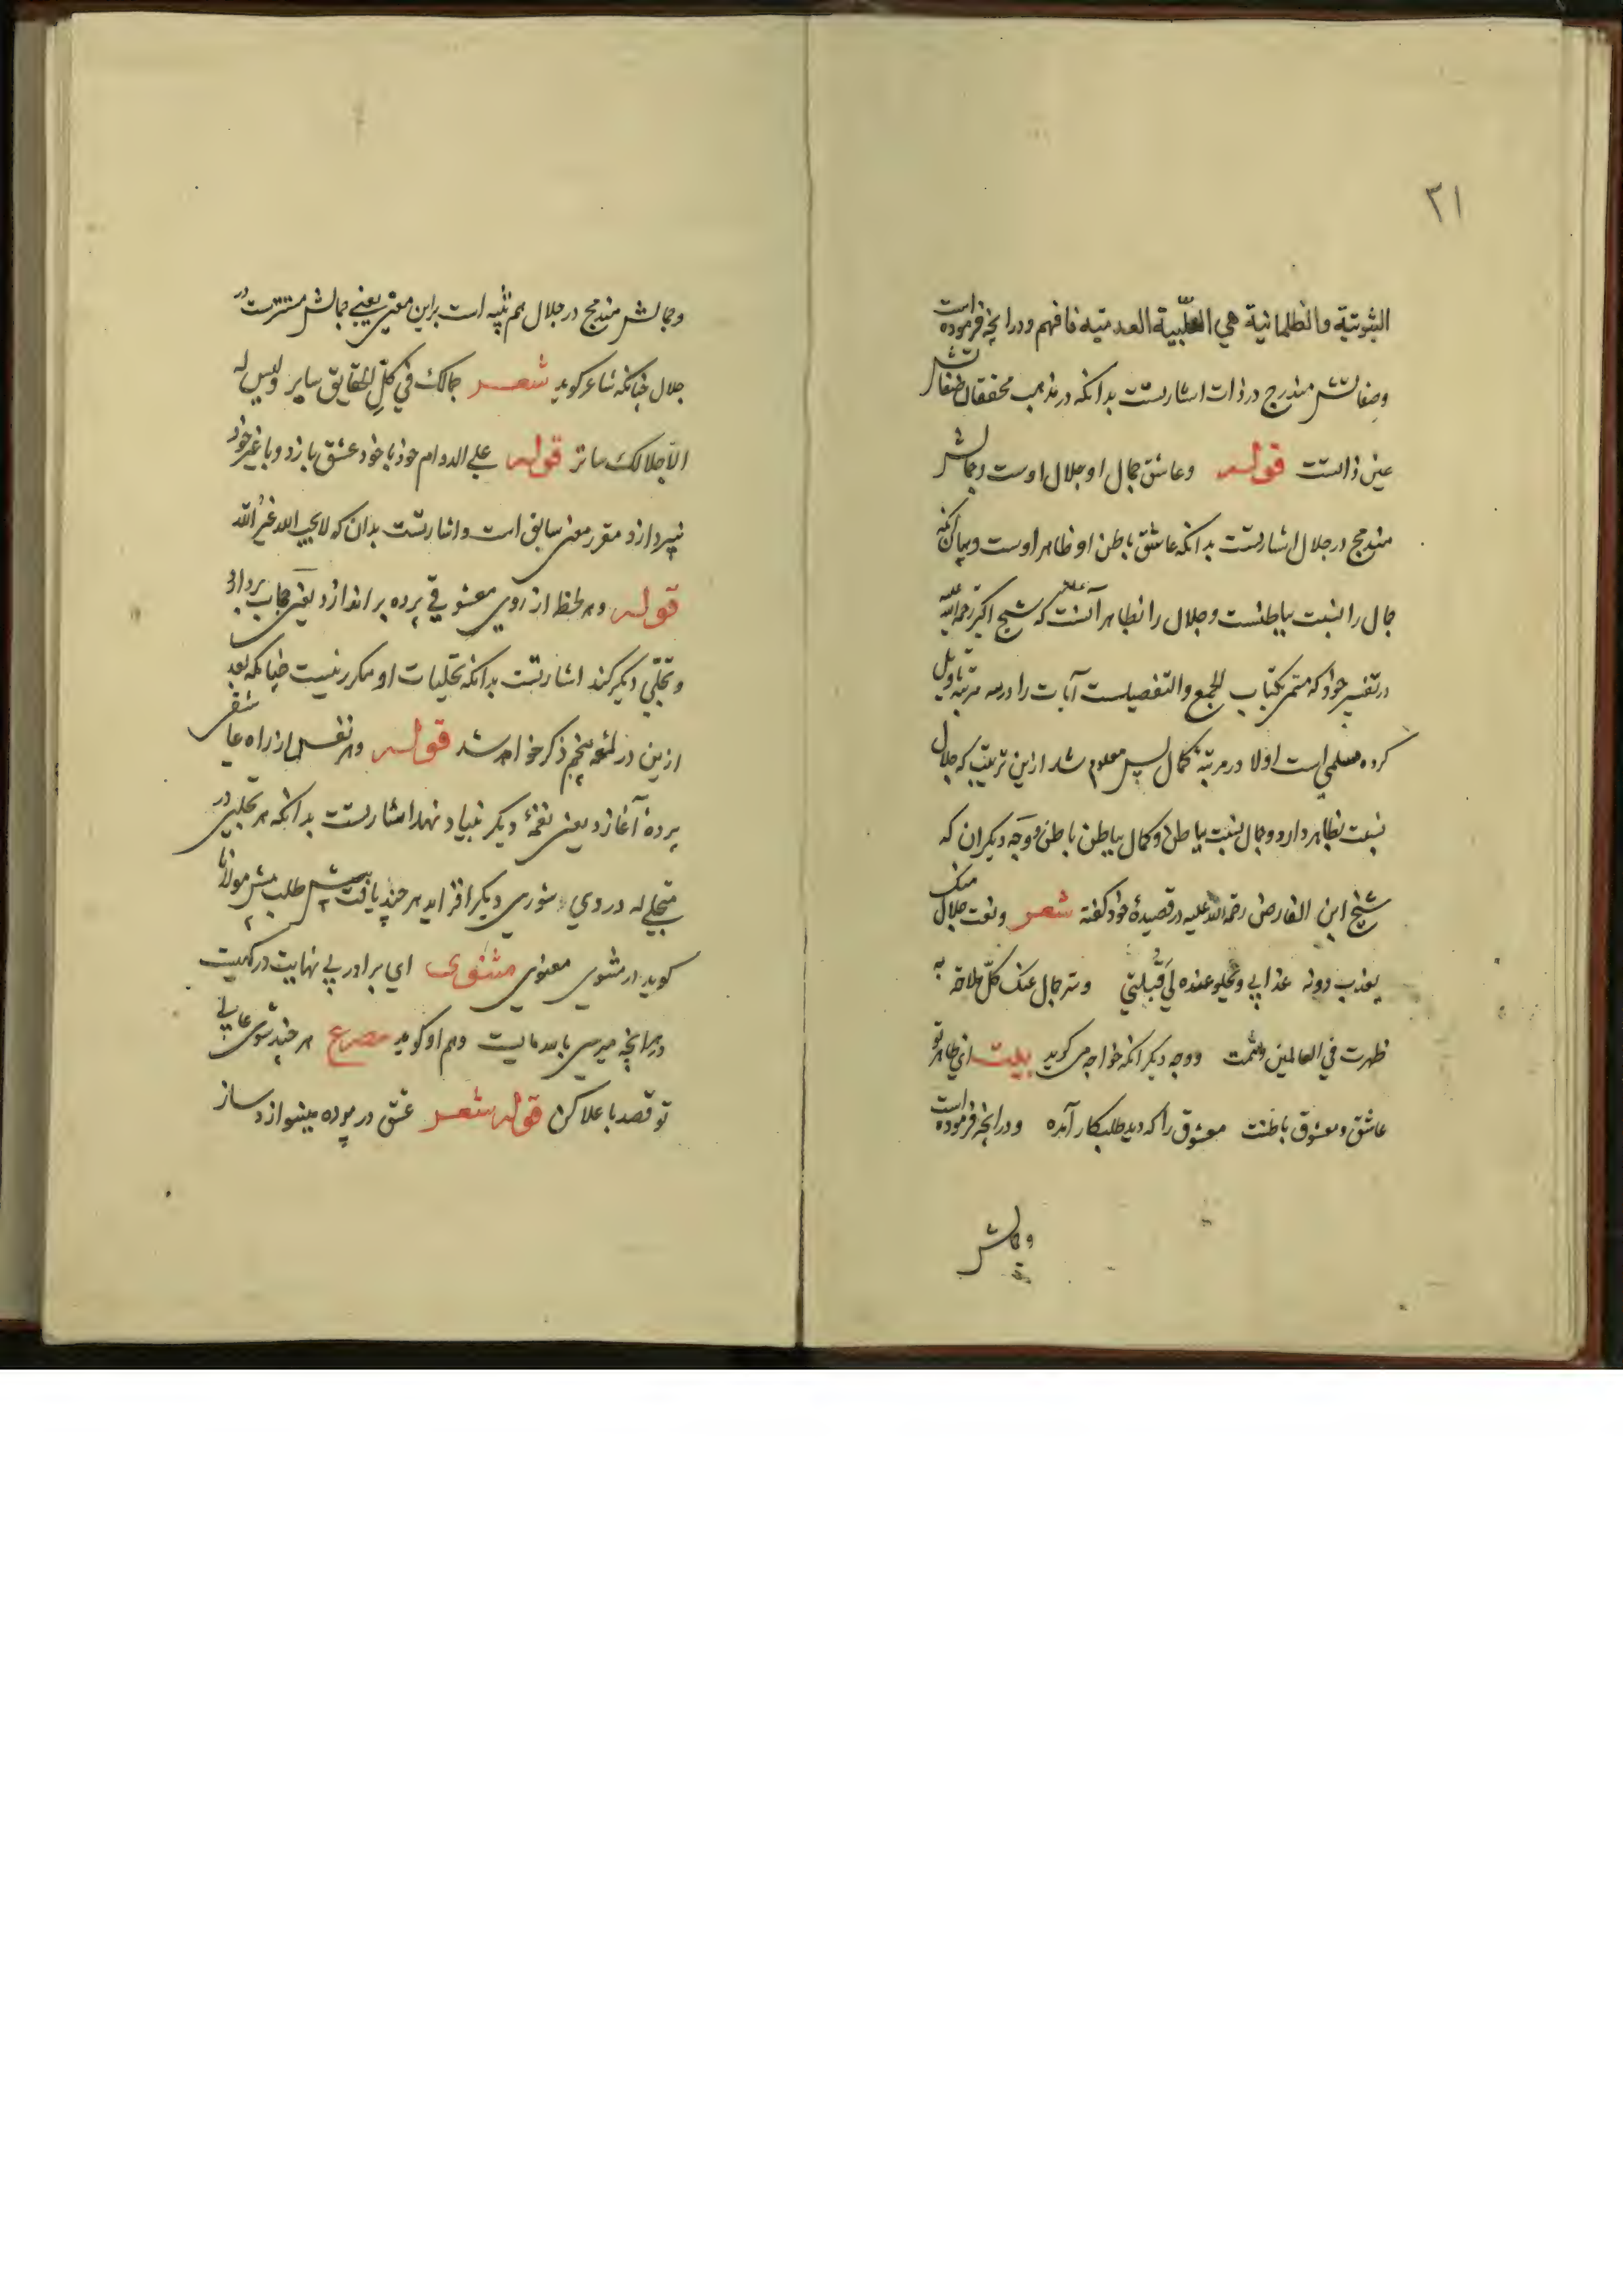 ۳۱
الثبوتية والظلمانية هي السلبية العدمية فافهم ودر انچه فرموده است
وصفاتش مندرج در ذات اشارتست بدانکه در مذهب محققان صفاتش
عین ذاتست قوله وعاشق جمال او جلال اوست وجمالش
مندمج در جلال اشارتست بدانکه عاشق باطن او ظاهر اوست وبیان آنکه
جمال را نسبت بباطنست وجلال را بظاهر آنست که شیخ اکبر رحمة الله علیه
در تفسیر خود که مسمی بکتاب الجمع والتفصیلست آیات را در سه مرتبه تاویل
کرده است اولا در مرتبه کمال پس معلوم شد ازین ترتیب که جلال
نسبت بظاهر دارد وجمال نسبت بباطن وکمال بباطن باطن ووجه دیگر ان که
شیخ ابن الفارض رحمة الله علیه در قصیدهٔ خود گفته شعر ونعت جلال منک
یعذب دونه عذابي وتحلو عنده لي قتلتي وسر جمال عنک کل ملاحة به
ظهرت في العالمین وتمت ووجه دیگر انکه خواجه می گوید بیت ای ظاهر تو
عاشق ومعشوق باطنت معشوق را که دید طلبکار آمده ودر انچه فرموده است
وجمالش
وجمالش مندمج در جلال هم تنبیه است براین معنی یعنی جمالش مستترست در
جلال چنانکه شاعر گوید شعر جمالک في کل الحقایق سایر ولیس له
الا جلالک ساتر قوله علی الدوام خود با خود عشق بازد وبا غیر خود
نپردازد مقرر معنی سابق است واشارتست بدان که لا یحب الله غیر الله
قوله وهر لحظه از روی معشوقی پرده براندازد یعنی حجاب بردارد
وتجلی دیگر کند اشارتست بدانکه تجلیات او مکرر نیست چنانکه بعد
ازین در لمعه پنجم ذکر خواهد شد قوله وهر نفس از راه عاشقی
پرده آغازد یعنی نغمهٔ دیگر بنیاد نهد اشارتست بدانکه هر تجلیی در
متجلی له دردی وشوری دیگر افزاید هر چند یافت بیش طلب بیش مولانا
گوید در مثنوی معنوی مثنوی ای برادر بی نهایت درگهیست
هرانچه میرسی بالله مایست وهم او گوید مصرع هر چند شوی عالی
تو قصد باعلا کن قوله شعر عشق در پرده مینوازد ساز